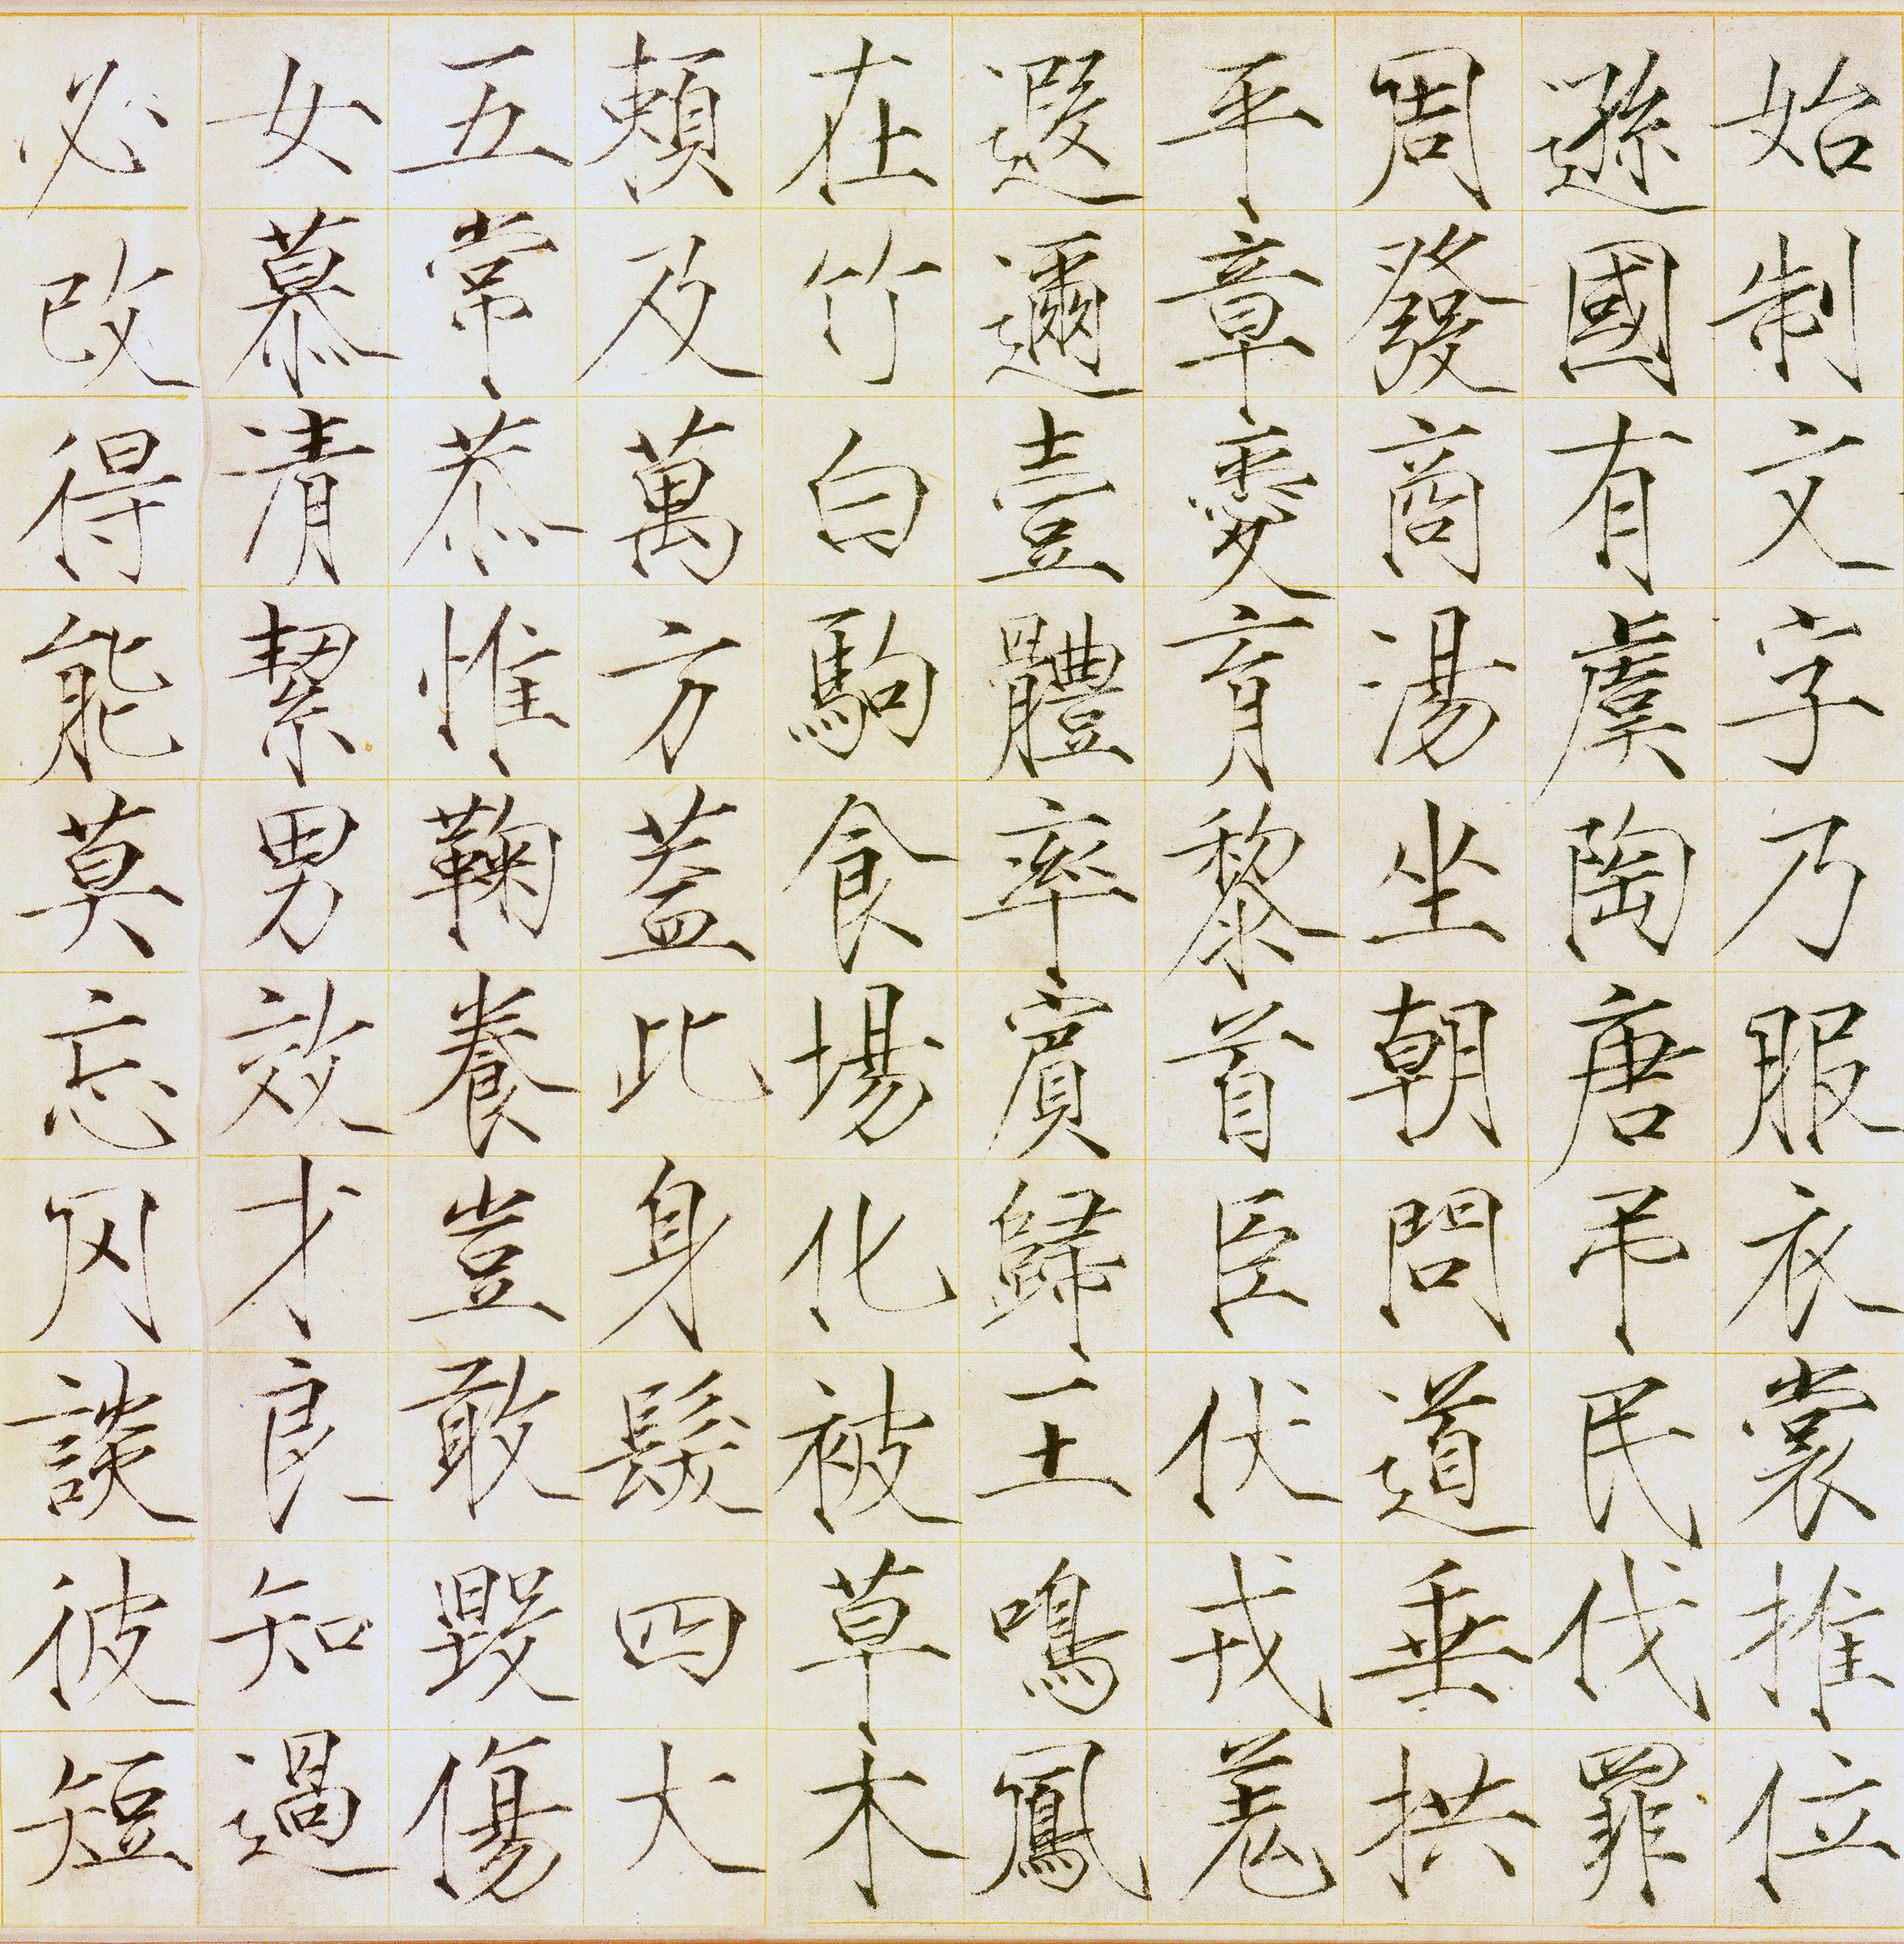 始制文字乃服衣裳推位
遜國有虞陶唐吊民伐罪
周發商湯坐朝問道垂拱
平章愛育黎首臣伏戎羌
遐邇壹體率賓歸王鳴鳳
在竹白駒食場化被草木
賴及萬方蓋此身髮四大
五常恭惟鞠養豈敢毀傷
女慕清絜男效才良知過
必改得能莫忘罔談彼短